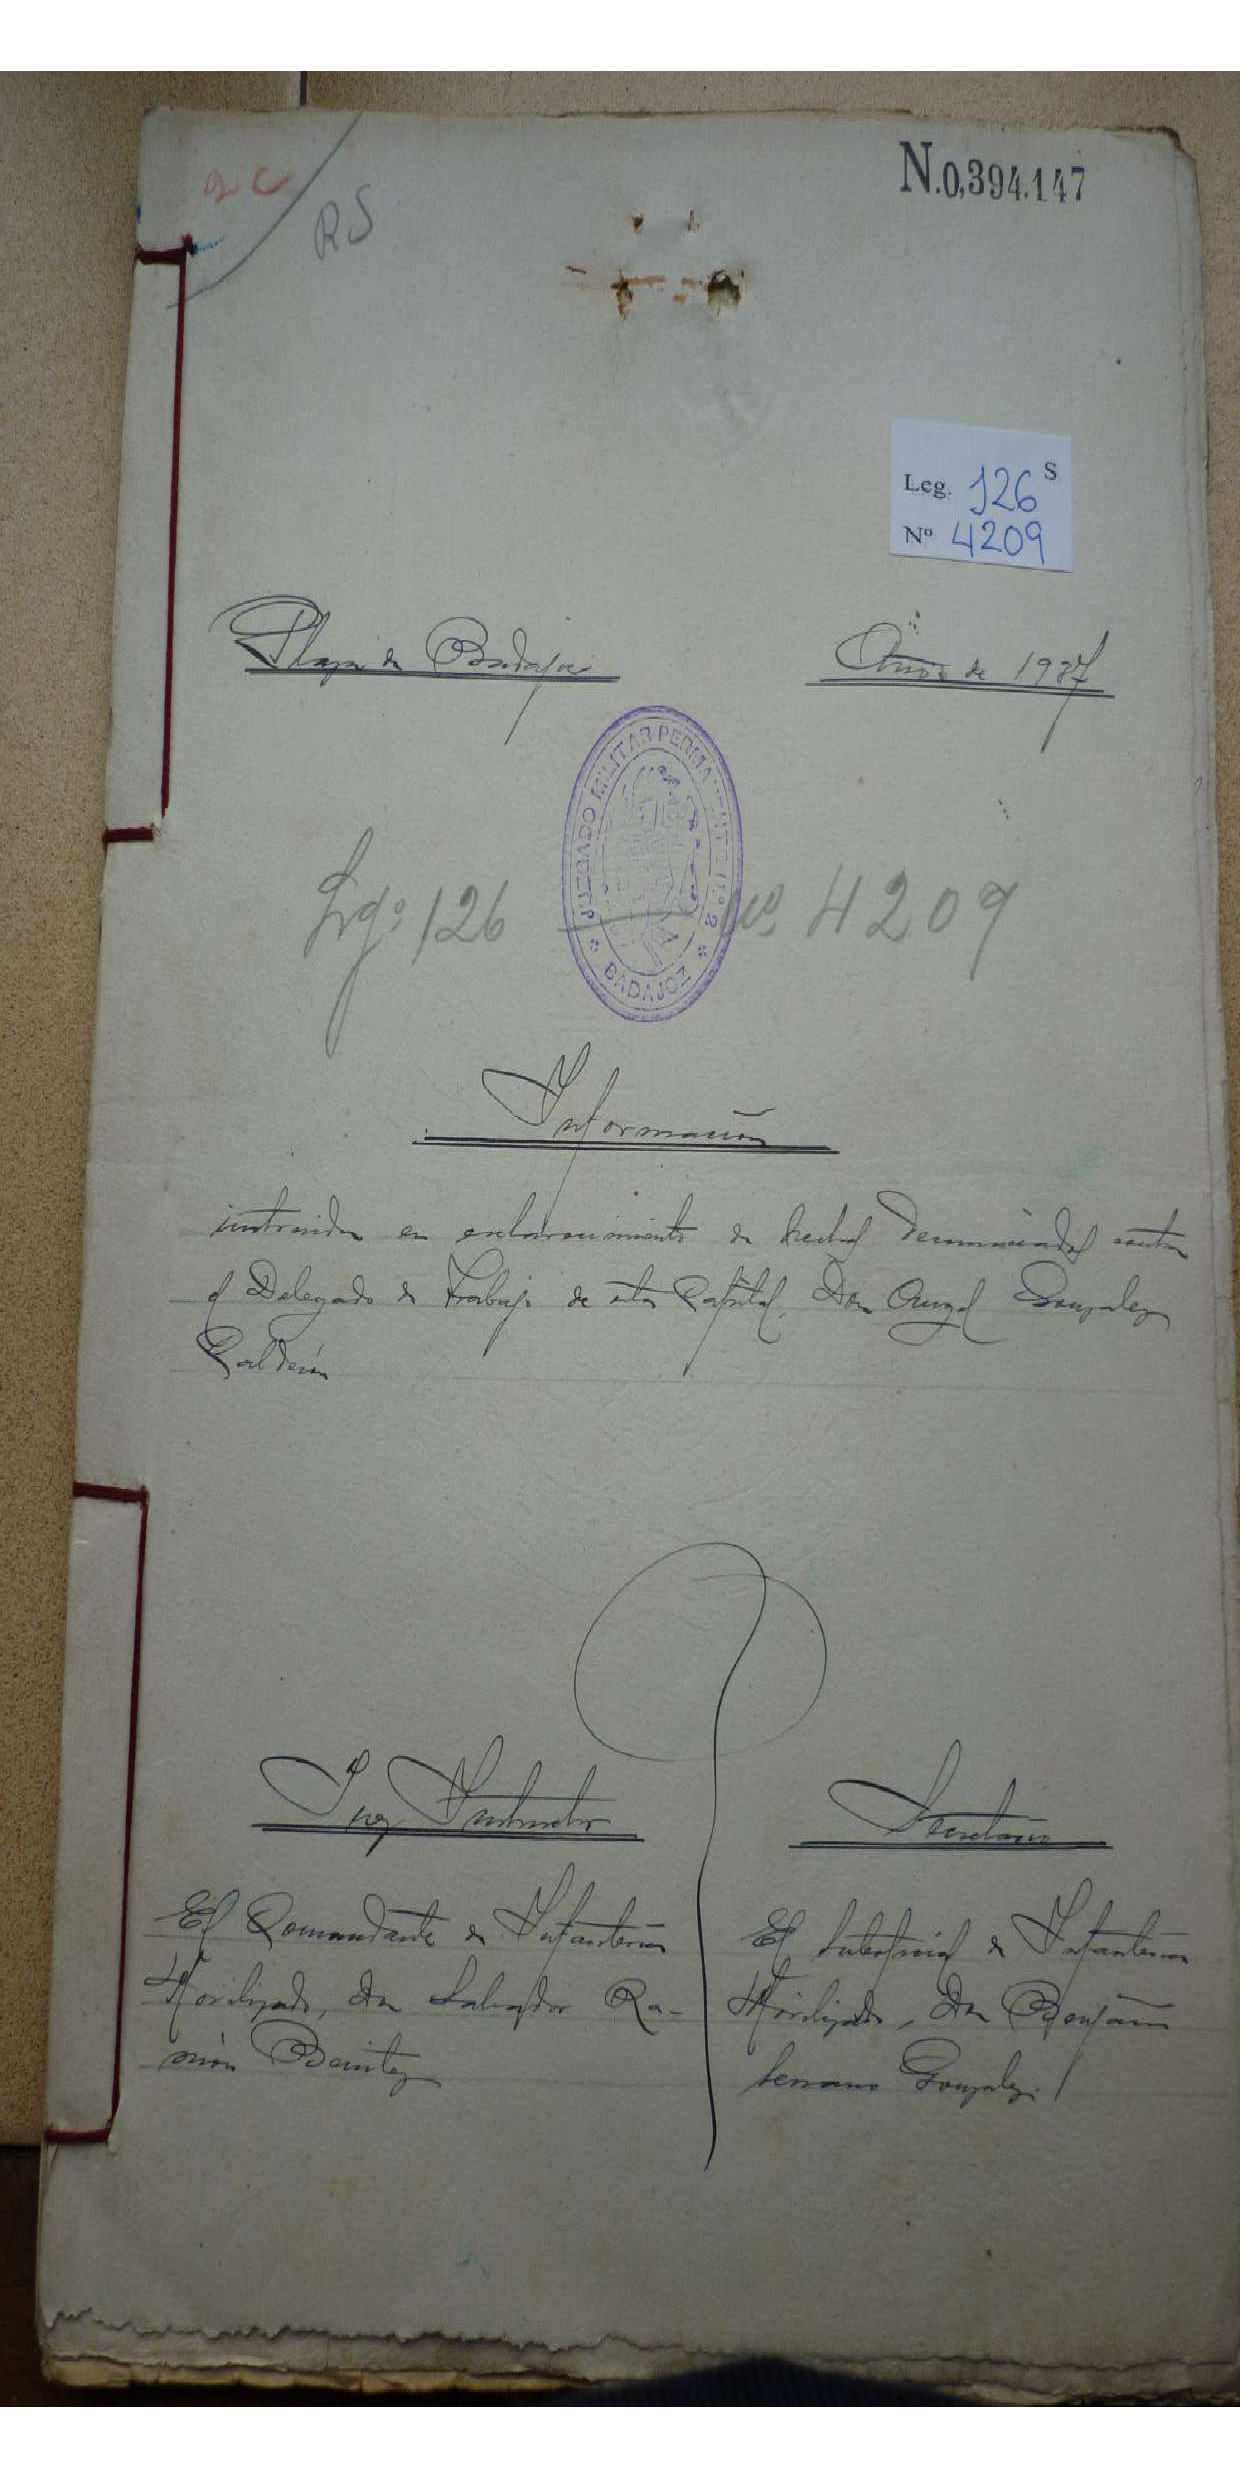 N.0,394.147
RS
Leg. 126 S
Nº 4209
Plaza de Badajoz
Año de 1937
JUZGADO MILITAR PERMANENTE N.º 2
BADAJOZ
Lgº 126 nº 4209
Información
instruida en esclarecimiento de hechos denunciados contra
el Delegado de Trabajo de esta Capital, Don Angel Gonzalez
Calderón
Juez Instructor
El Comandante de Infantería
Movilizado, Don Salvador Ra-
món Benitez
Secretario
El Suboficial de Infantería
Movilizado, Don Benjamin
Serrano Gonzalez.